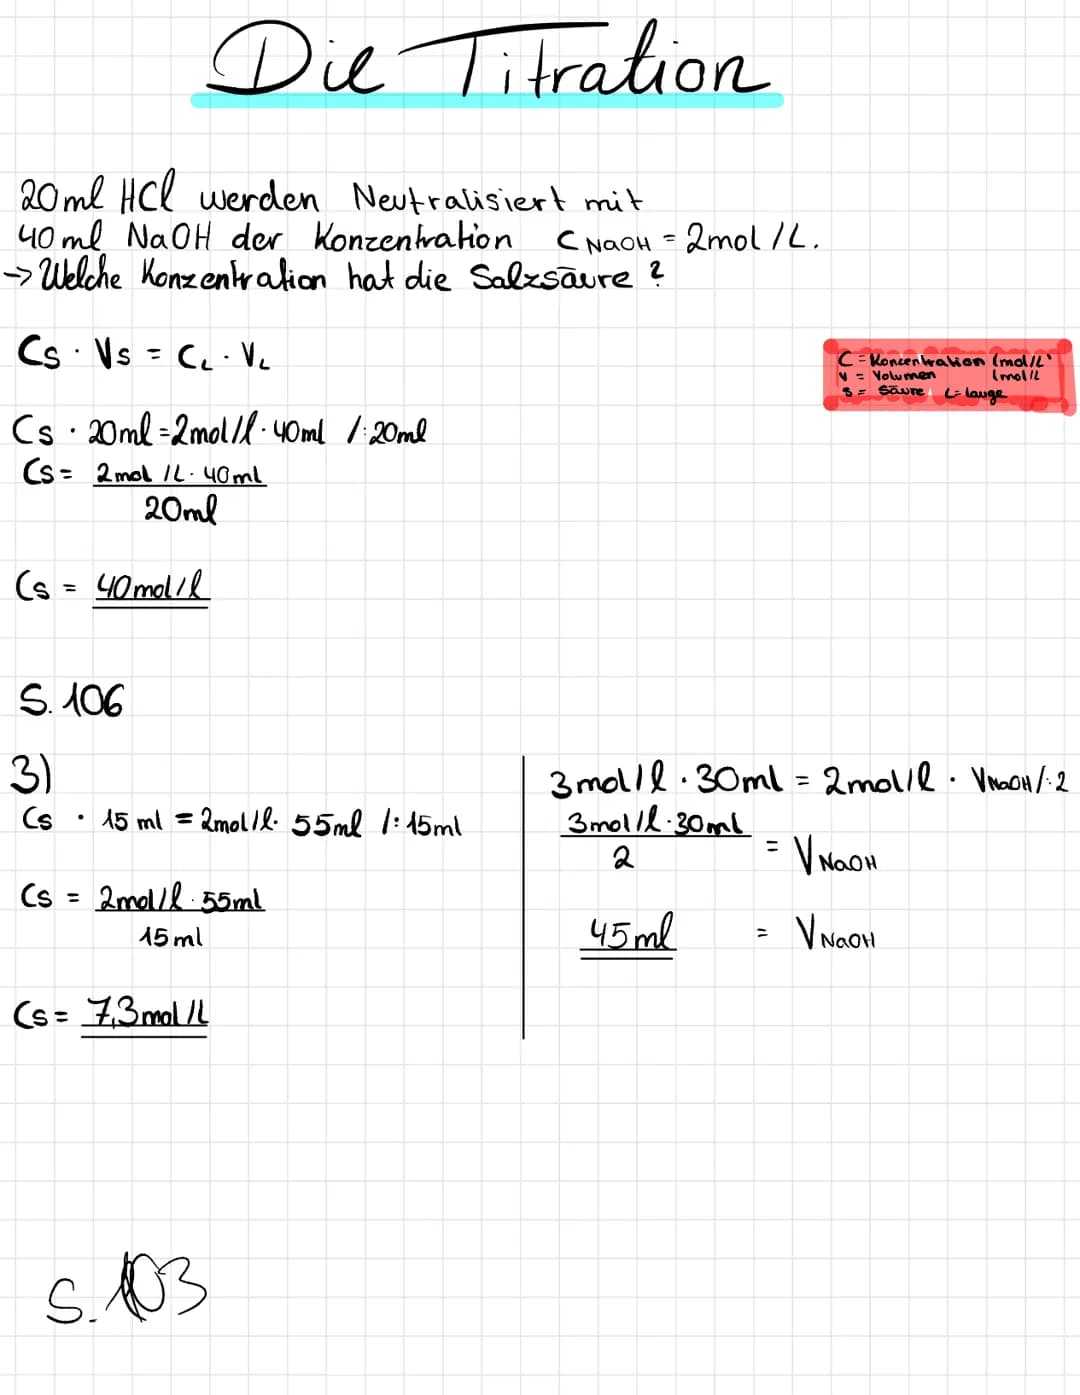 Die Titration
20ml HCl werden Neutralisiert mit
40ml NaOH der Konzentration C NaOH = 2mol/L.
→ Welche Konzentration hat die Salzsäure?
Cs · Vs = CL · VL
C = Konzentration (mol/L)
V = Volumen (mol/L
S = Säure L = lauge
Cs · 20ml = 2mol/l · 40ml /:20ml
Cs = 2mol/L · 40ml
20ml
Cs = 40mol/l
S. 106
3)
Cs · 15 ml = 2mol/l · 55ml /: 15ml
Cs = 2mol/l · 55ml
15ml
Cs = 7,3mol/L
3mol/l · 30ml = 2mol/l · VNaOH /:2
3mol/l · 30ml
2
= VNaOH
45ml = VNaOH
S. 103